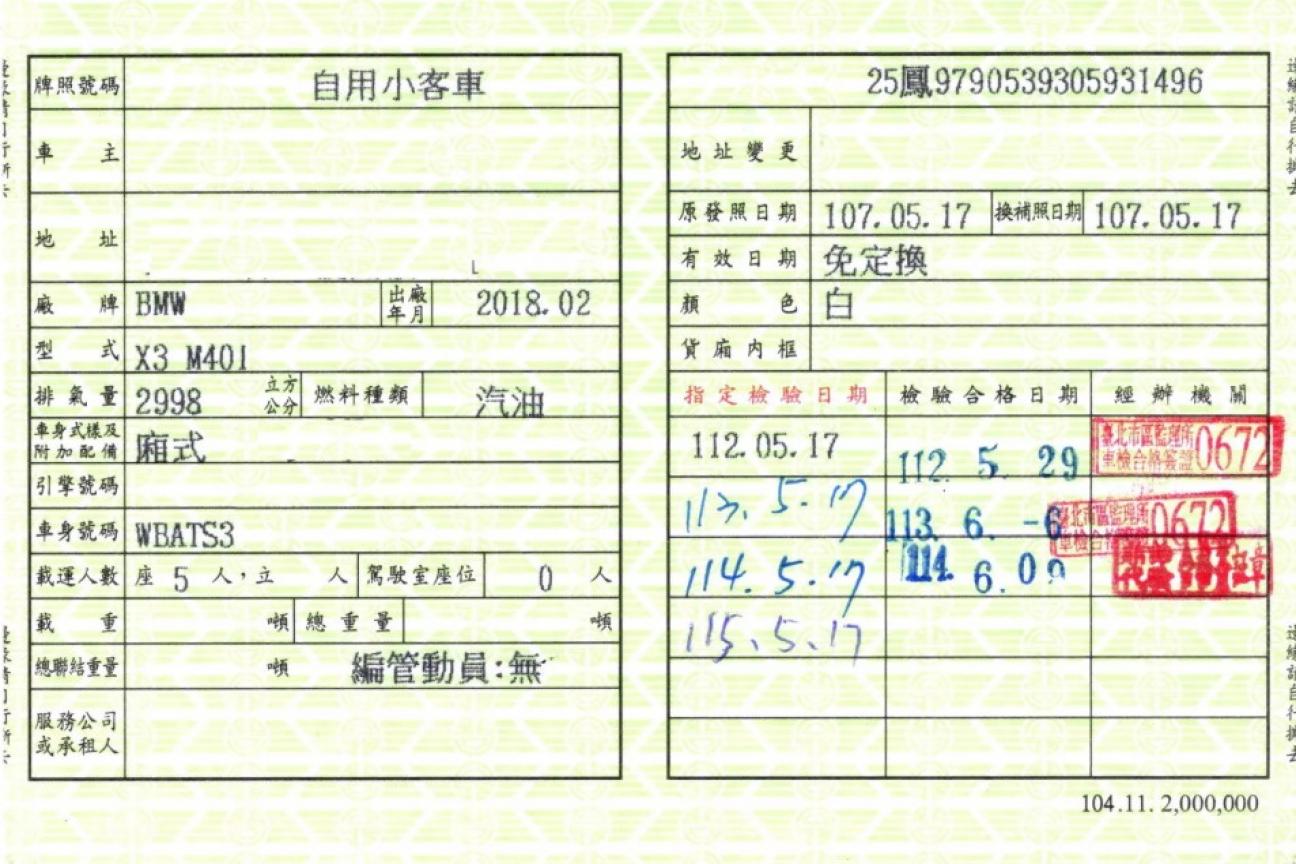 牌照號碼 自用小客車
車主
地址
廠牌 BMW 出廠年月 2018.02
型式 X3 M40I
排氣量 2998 立方公分 燃料種類 汽油
車身式樣及附加配備 廂式
引擎號碼
車身號碼 WBATS3
載運人數 座 5 人,立 人 駕駛室座位 0 人
載重 噸 總重量 噸
總聯結重量 噸 編管動員:無
服務公司或承租人
25鳳9790539305931496
地址變更
原發照日期 107.05.17 換補照日期 107.05.17
有效日期 免定換
顏色 白
貨廂內框
指定檢驗日期 檢驗合格日期 經辦機關
112.05.17 112. 5. 29 臺北市區監理所 車檢合格簽證 0672
113.5.17 113. 6. -6 臺北市區監理所 車檢合格 0672
114.5.17 114. 6. 09
115.5.17
104.11. 2,000,000